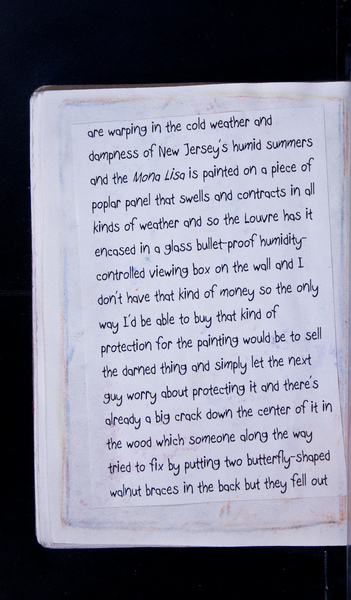 are warping in the cold weather and
dampness of New Jersey's humid summers
and the Mona Lisa is painted on a piece of
poplar panel that swells and contracts in all
kinds of weather and so the Louvre has it
encased in a glass bullet-proof humidity-
controlled viewing box on the wall and I
don't have that kind of money so the only
way I'd be able to buy that kind of
protection for the painting would be to sell
the darned thing and simply let the next
guy worry about protecting it and there's
already a big crack down the center of it in
the wood which someone along the way
tried to fix by putting two butterfly-shaped
walnut braces in the back but they fell out